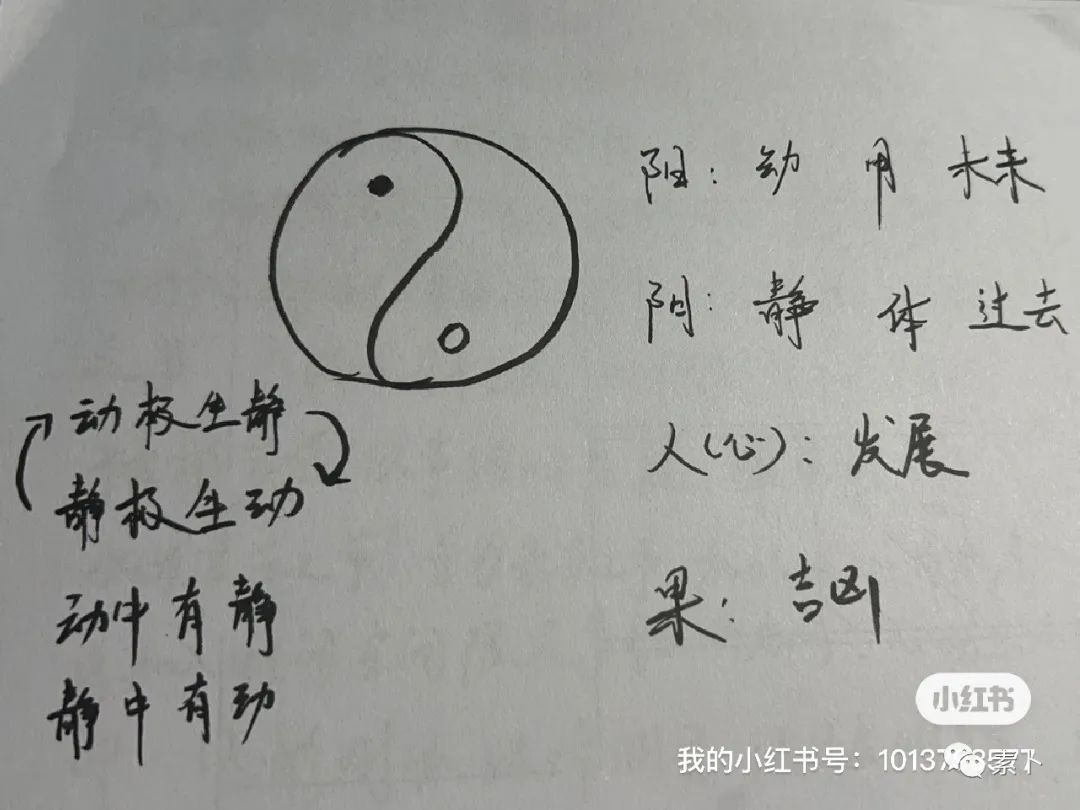 阳：动 用 未来
阴：静 体 过去
动极生静
静极生动
人(心)：发展
动中有静
果：吉凶
静中有动
小红书
我的小红书号：
索卜